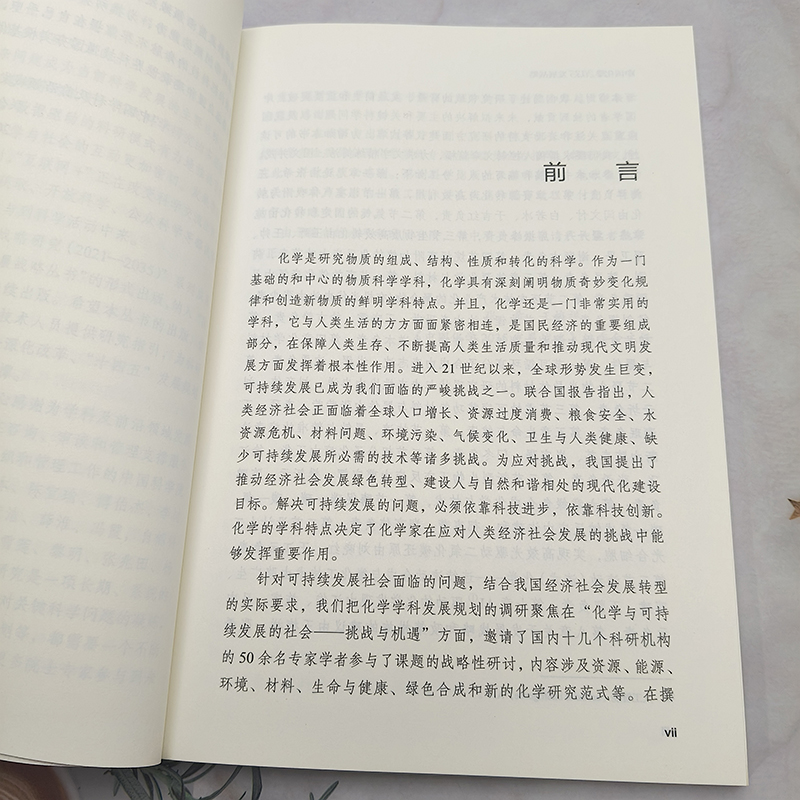 前 言
化学是研究物质的组成、结构、性质和转化的科学。作为一门
基础的和中心的物质科学学科，化学具有深刻阐明物质奇妙变化规
律和创造新物质的鲜明学科特点。并且，化学还是一门非常实用的
学科，它与人类生活的方方面面紧密相连，是国民经济的重要组成
部分，在保障人类生存、不断提高人类生活质量和推动现代文明发
展方面发挥着根本性作用。进入 21 世纪以来，全球形势发生巨变，
可持续发展已成为我们面临的严峻挑战之一。联合国报告指出，人
类经济社会正面临着全球人口增长、资源过度消费、粮食安全、水
资源危机、材料问题、环境污染、气候变化、卫生与人类健康、缺
少可持续发展所必需的技术等诸多挑战。为应对挑战，我国提出了
推动经济社会发展绿色转型、建设人与自然和谐相处的现代化建设
目标。解决可持续发展的问题，必须依靠科技进步，依靠科技创新。
化学的学科特点决定了化学家在应对人类经济社会发展的挑战中能
够发挥重要作用。
针对可持续发展社会面临的问题，结合我国经济社会发展转型
的实际要求，我们把化学学科发展规划的调研聚焦在“化学与可持
续发展的社会——挑战与机遇”方面，邀请了国内十几个科研机构
的 50 余名专家学者参与了课题的战略性研讨，内容涉及资源、能源、
环境、材料、生命与健康、绿色合成和新的化学研究范式等。在撰
vii